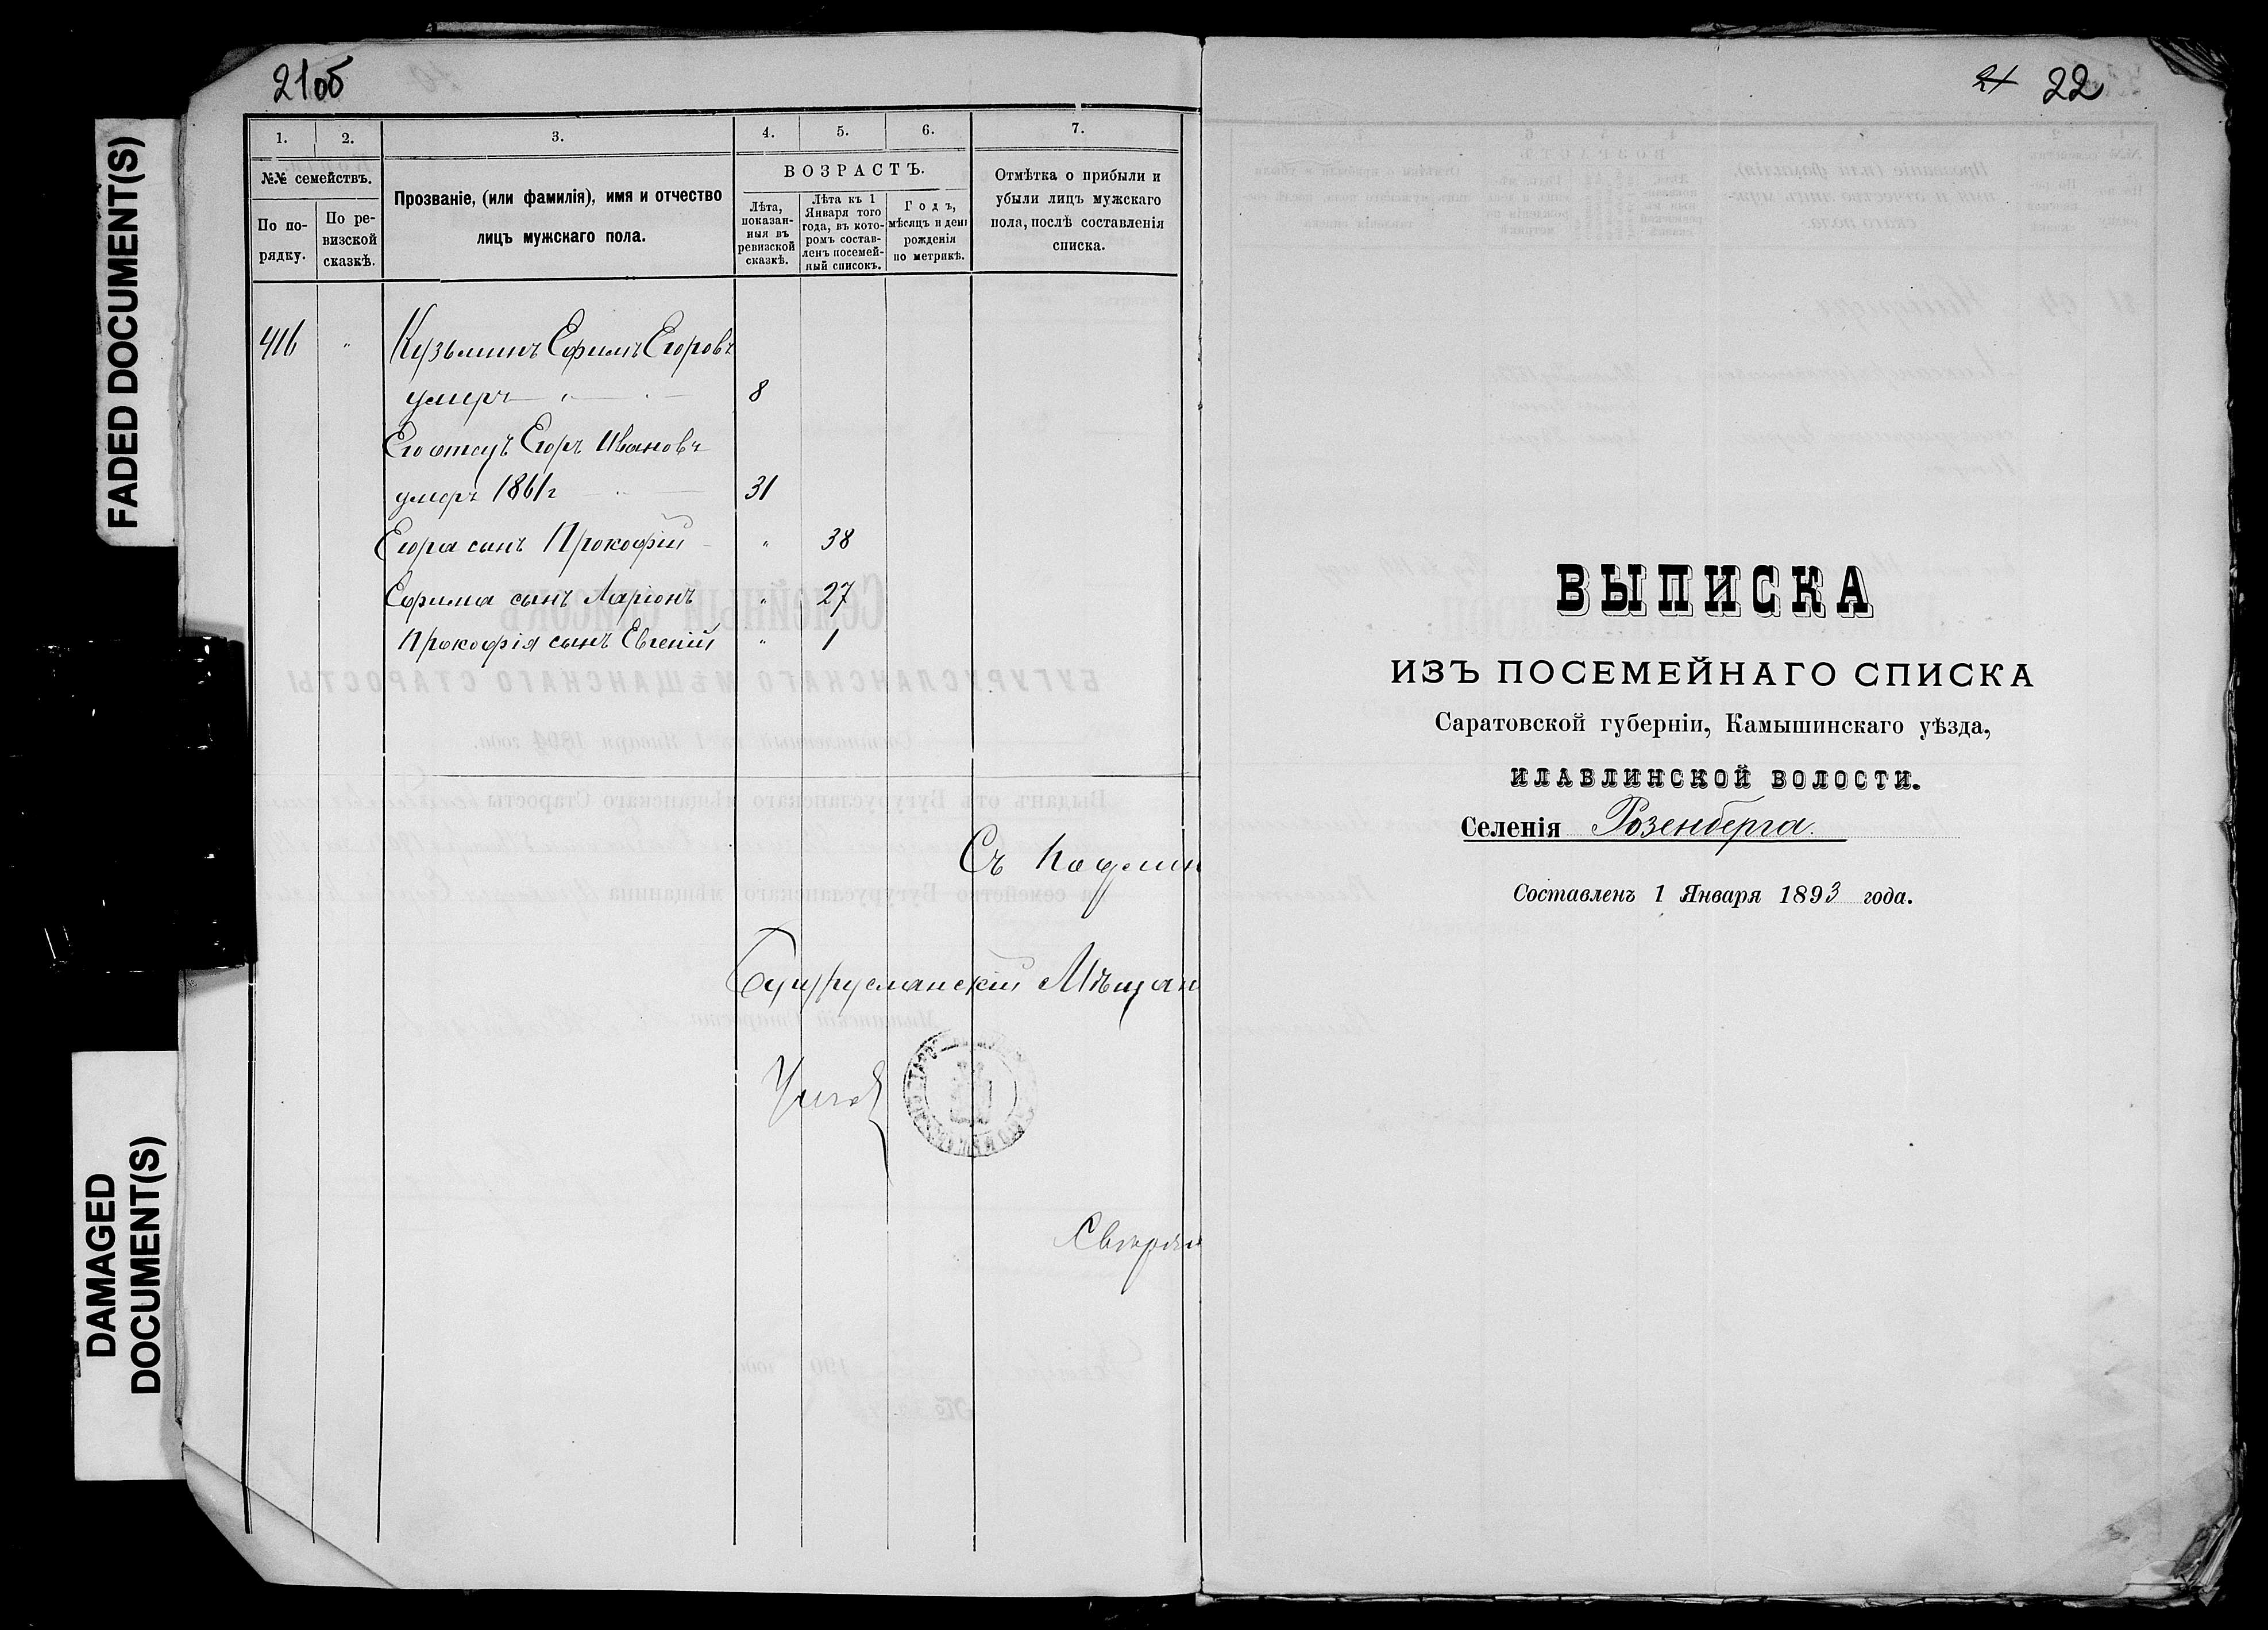 FADED DOCUMENT(S)
DAMAGED
DOCUMENT(S)
21об
1. 2. 3. 4. 5. 6. 7.
№№ семействъ.
По по-
рядку.
По ре-
визской
сказкѣ.
Прозваніе, (или фамилія), имя и отчество
лицъ мужскаго пола.
ВОЗРАСТЪ.
Лѣта,
показан-
ныя въ
ревизской
сказкѣ.
Лѣта къ 1
Января того
года, въ кото-
ромъ состав-
ленъ посемей-
ный списокъ.
Годъ,
мѣсяцъ и день
рожденія
по метрикѣ.
Отмѣтка о прибыли и
убыли лицъ мужскаго
пола, послѣ составленія
списка.
416 " Кузьминъ Ефимъ Егоровъ
умеръ " 8
Его отецъ Егоръ Ивановъ
умеръ 1861г 31
Егора сынъ Прокофій " 38
Ефима сынъ Ларіонъ " 27
Прокофія сынъ Евгеній " 1
Съ
Бугурусланскій Мѣщан
21 22
ВЫПИСКА
ИЗЪ ПОСЕМЕЙНАГО СПИСКА
Саратовской губерніи, Камышинскаго уѣзда,
ИЛАВЛИНСКОЙ ВОЛОСТИ.
Селенія Розенберга.
Составленъ 1 Января 1893 года.